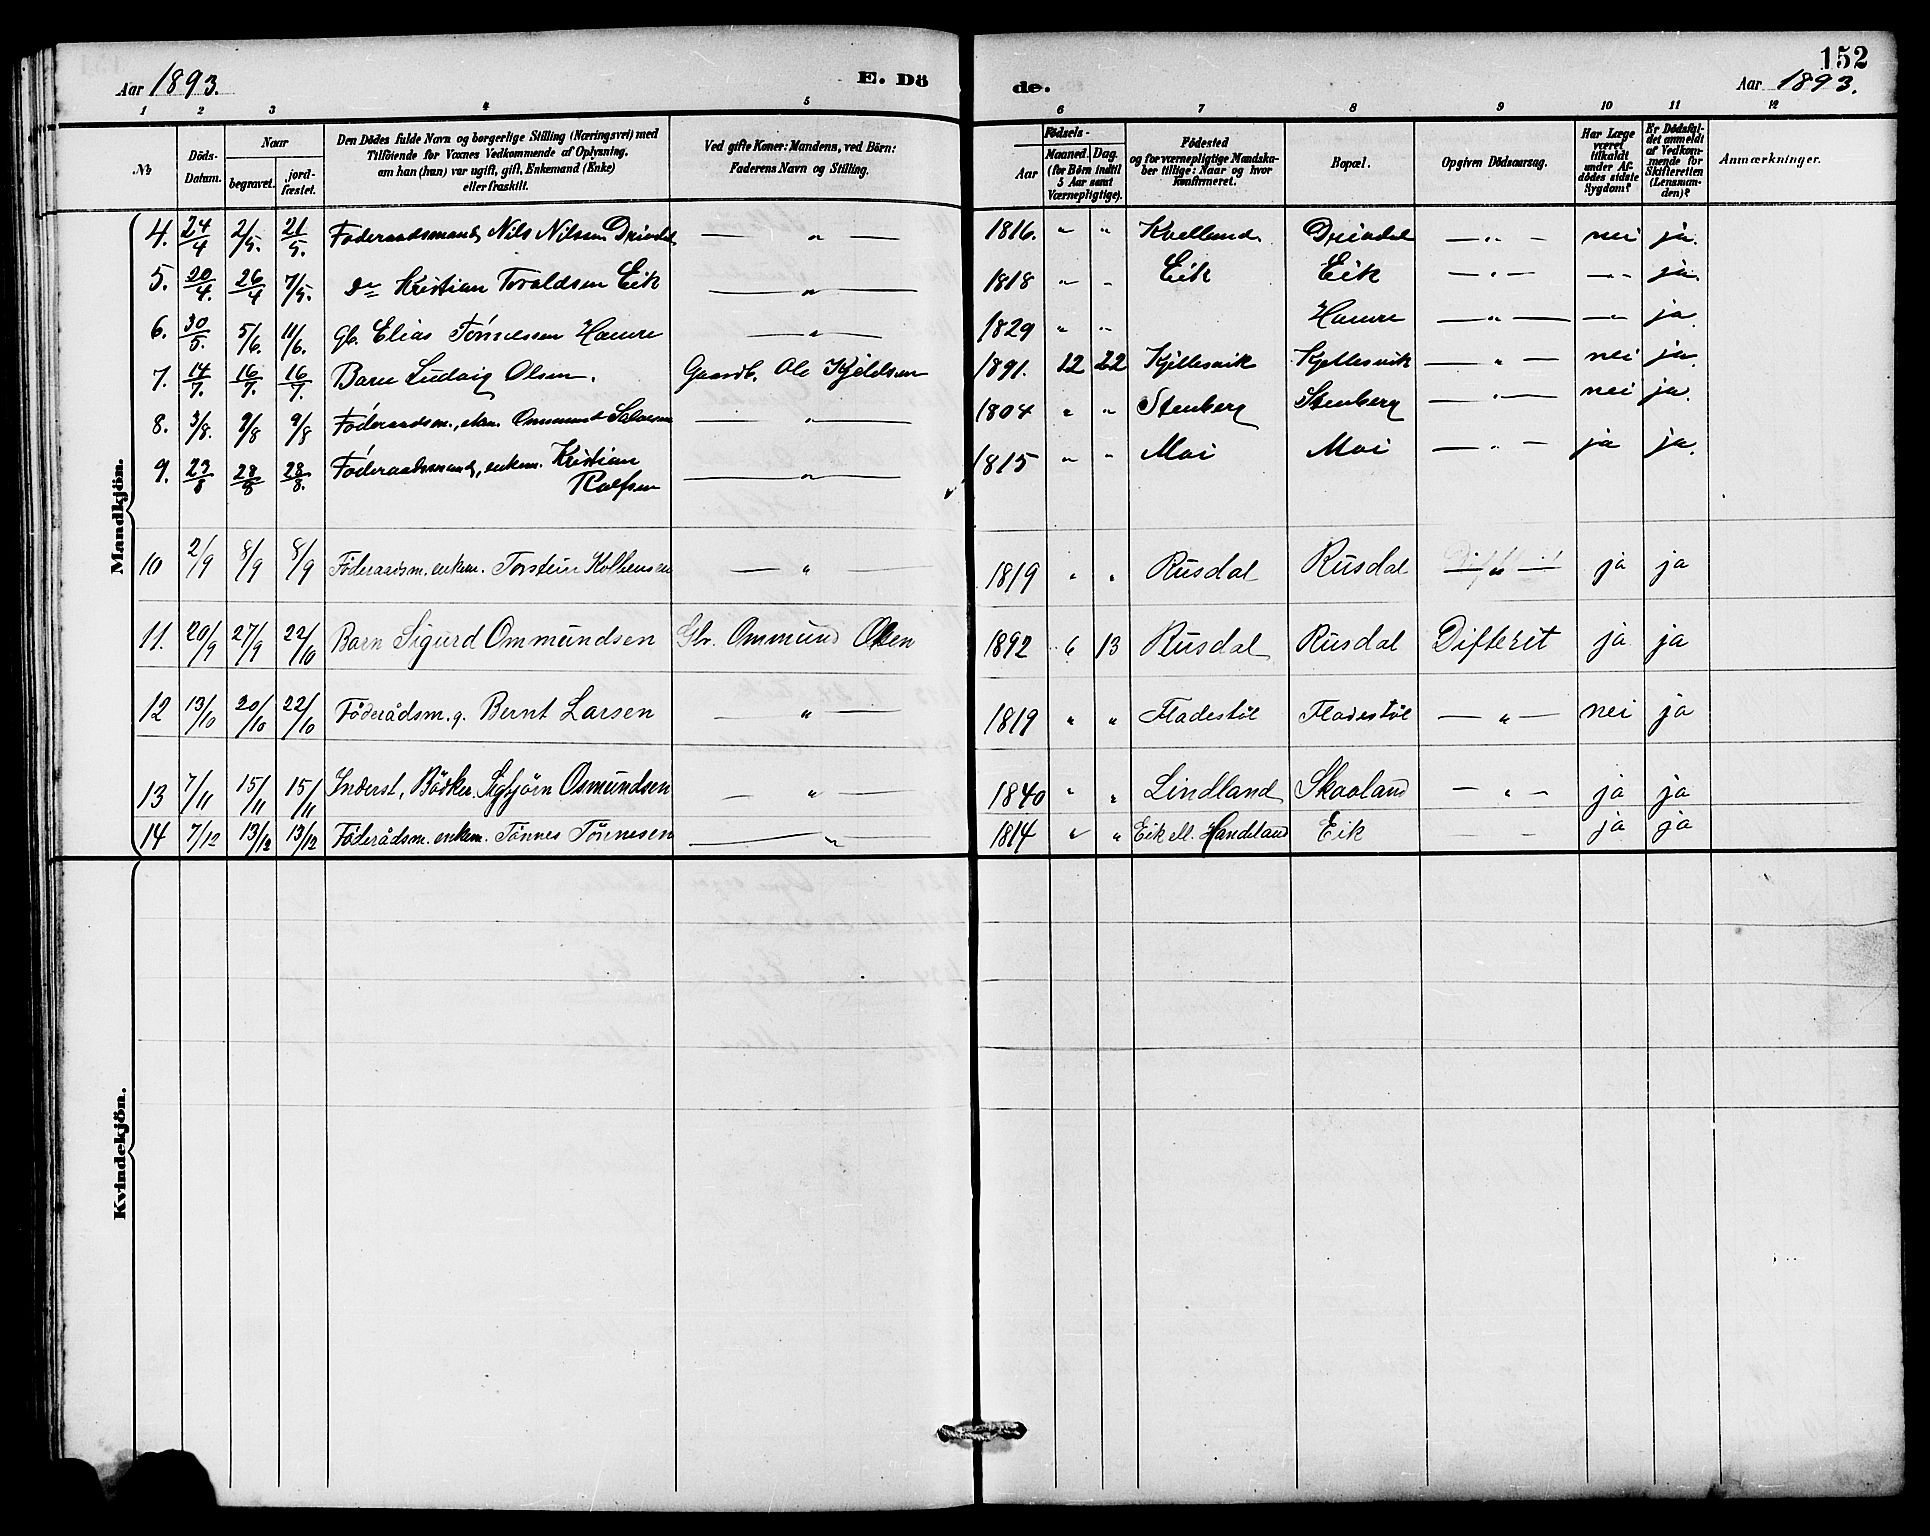 152
Aar 1893. E. Dö de. Aar 1893.
1 2 3 4 5 6 7 8 9 10 11 12
№ Döds-Datum. Naar begravet. jord-fæstet. Den Dödes fulde Navn og borgerlige Stilling (Næringsvei) med Tilföiende for Voxnes Vedkommende af Oplysning, om han (hun) var ugift, gift, Enkemand (Enke) eller fraskilt. Ved gifte Koner: Mandens, ved Börn: Faderens Navn og Stilling. Födsels- Aar Maaned. Dag. (for Börn indtil 5 Aar samt Værnepligtige). Födested og for værnepligtige Mandskaber tillige: Naar og hvor konfirmeret. Bopæl. Opgiven Dödsaarsag. Har Læge været tilkaldt under Afdödes sidste Sygdom? Er Dödsfaldet anmeldt af Vedkommende for Skifteretten (Lensmanden)? Anmærkninger.
Mandkjön.
4. 24/4 2/5. 21/5. Föderaadsmand, Nils Nilsen Dreidal — " — 1816. " " Kvelland. Dreidal — " — nei ja.
5. 20/4. 26/4 7/5. Do Kristian Toraldsen Eik — " — 1818 " " Eik Eik — " — — " — ja.
6. 30/5. 5/6. 11/6. Gb. Elias Tönnessen Hamre — " — 1829 " " Hamre — " — — " — ja.
7. 14/7. 16/7. 16/7. Barn Ludvig Olsen. Gaardb. Ole Kjeldsen 1891. 12 22 Kjillesvik Kjellesvik — " — nei ja.
8. 3/8. 9/8 9/8 Föderaadsm., ekm. Ommund Salvesen — " — 1804 " " Stenberg Stenberg — " — nei ja.
9. 23/8 28/8 28/8. Föderaadsmand, enkem. Kristian — " — 1815 " " Moi Moi — " — ja ja.
Rolfsen
10 2/9 8/9 8/9 Föderaadsm. enkem. Torstein Kolbensen — " — 1819 " " Rusdal Rusdal — " — ja ja
11. 20/9 27/9 22/10 Barn Sigurd Ommundsen Gbr. Ommund Olsen 1892 6 13 Rusdal Rusdal Difterit ja ja
12 13/10 20/10 22/10 Föderådsm. g. Bernt Larsen — " — 1819 " " Fladestöl Fladestöl — " — nei ja
13 7/11 15/11 15/11 Inderst, Bödker. Sigbjörn Osmundsen — " — 1840 " " Lindland Skaaland — " — ja ja
14 7/12 13/12 13/12 Föderådsm. enkem. Tönnes Tönnesen — " — 1814 " " Eik ell. Handeland Eik — — ja ja
Kvindekjön.